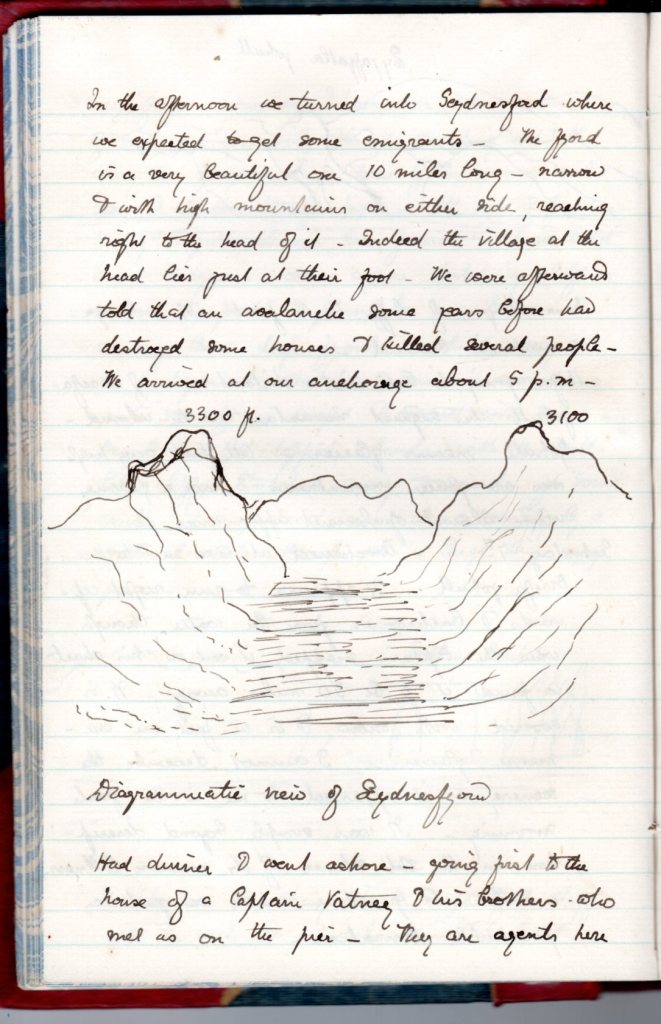 In the afternoon we turned into Seydnesfjord where
we expected to get some emigrants – The fjord
is a very beautiful one 10 miles long – narrow
& with high mountains on either side, reaching
right to the head of it – Indeed the village at the
head lies just at their foot – We were afterward
told that an avalanche some years before had
destroyed some houses & killed several people –
We arrived at our anchorage about 5 p.m –
3300 ft.
3100
Diagrammatic view of Seydnesfjord
Had dinner & went ashore – going first to the
house of a Captain Vatney & his brothers who
met us on the pier – They are agents here